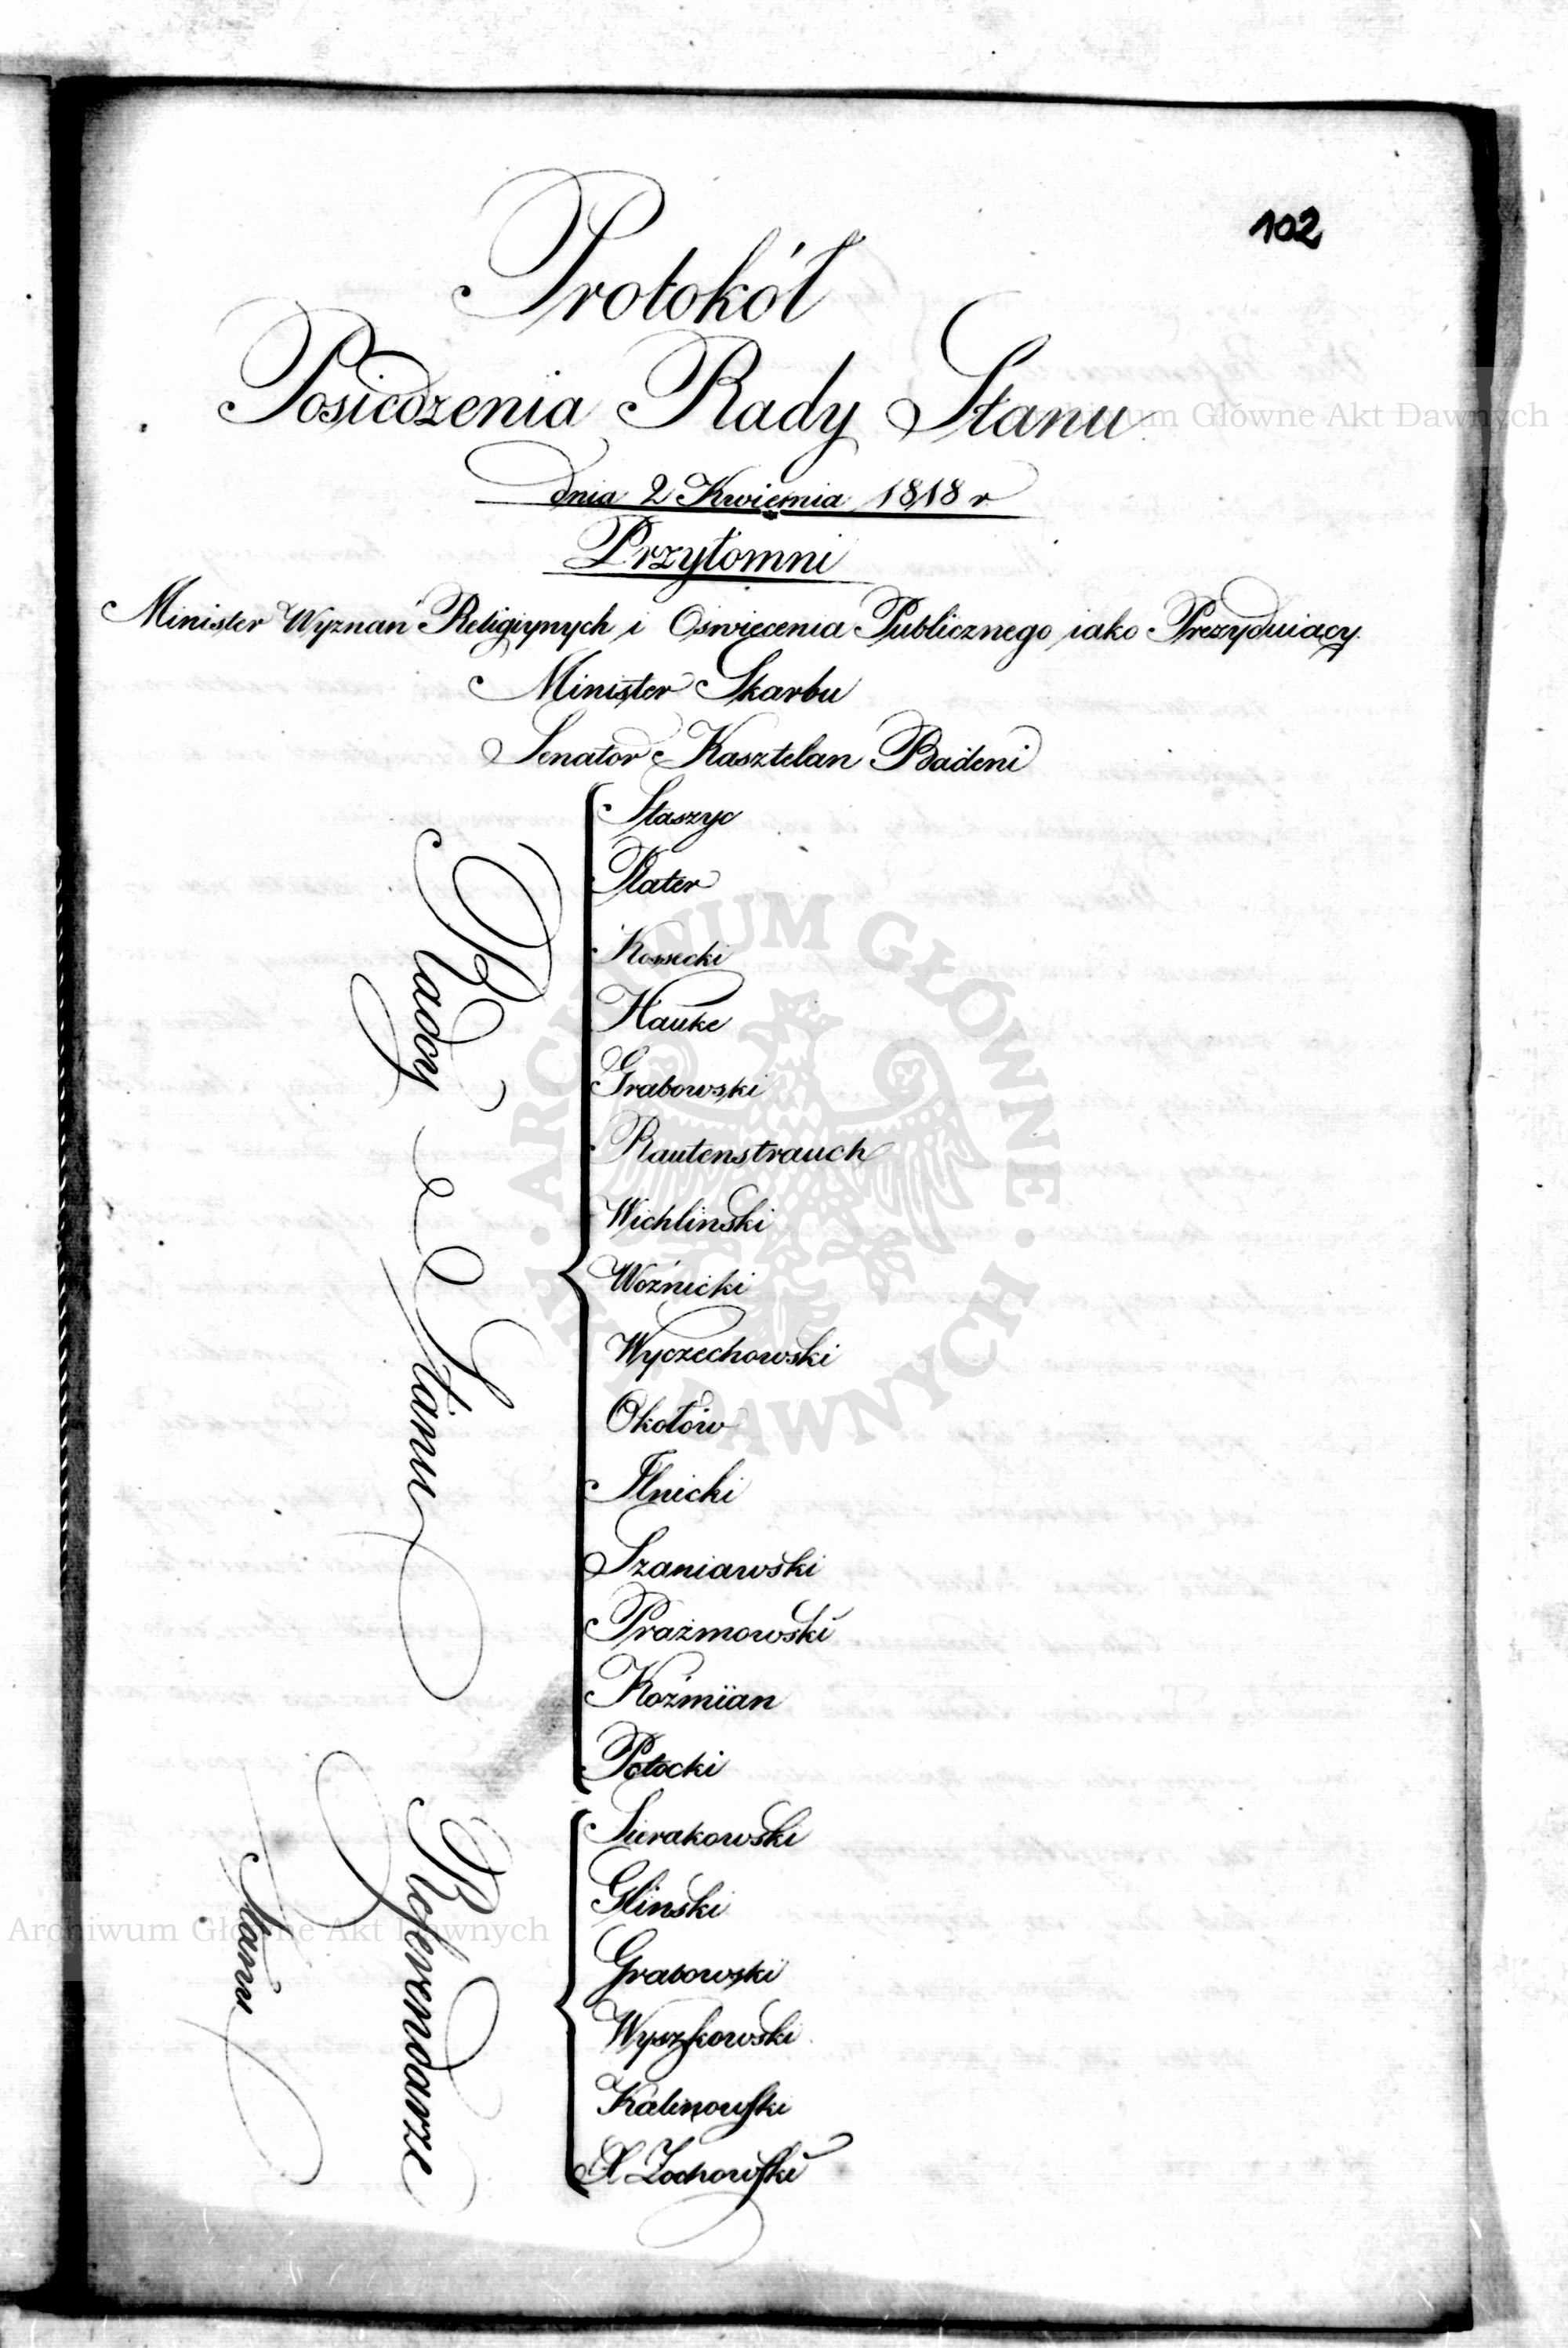 102
Protokół
Posiedzenia Rady Stanu
dnia 2 Kwietnia 1818 r
Przytomni
Minister Wyznań Religiynych i Oświecenia Publicznego iako Prezyduiący
Minister Skarbu
Senator Kasztelan Badeni
Radcy Stanu
Staszyc
Plater
Kossecki
Hauke
Grabowski
Rautenstrauch
Wichlinski
Woźnicki
Wyczechowski
Okołów
Ilnicki
Szaniawski
Prażmowski
Koźmian
Potocki
Referendarze
Stanu
Sierakowski
Gliński
Grabowski
Wyszkowski
Kalinowski
X. Zochowski
Archiwum Główne Akt Dawnych
Archiwum Główne Akt Dawnych
ARCHIWUM GŁÓWNE AKT DAWNYCH